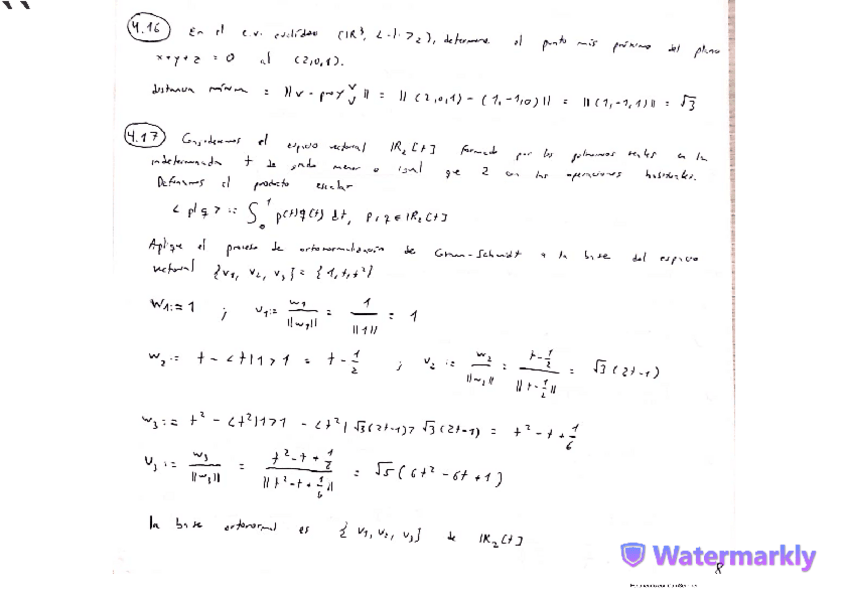 4.16 En el e.v. euclídeo (IR³, <·|·>₂), determine el punto más próximo del plano
x+y+z=0 al (2,0,1).
distancia mínima = ||v - proy_U v|| = ||(2,0,1) - (1,-1,0)|| = ||(1,-1,1)|| = √3
4.17 Consideremos el espacio vectorial IR₂[t] formado por los polinomios reales en la
indeterminada t de grado menor o igual que 2 con las operaciones habituales.
Definamos el producto escalar
<p|q> := ∫₀¹ p(t)q(t) dt, p,q ∈ IR₂[t]
Aplique el proceso de ortonormalización de Gram-Schmidt a la base del espacio
vectorial {v₁, v₂, v₃} = {1, t, t²}
w₁ := 1 ; v₁ := w₁/||w₁|| = 1/||1|| = 1
w₂ := t - <t|1>1 = t - 1/2 ; v₂ := w₂/||w₂|| = (t - 1/2)/||t - 1/2|| = √3(2t-1)
w₃ := t² - <t²|1>1 - <t²|√3(2t-1)>√3(2t-1) = t² - t + 1/6
v₃ := w₃/||w₃|| = (t² - t + 1/6)/||t² - t + 1/6|| = √5(6t² - 6t + 1)
la base ortonormal es {v₁, v₂, v₃} de IR₂[t]
Watermarkly
8